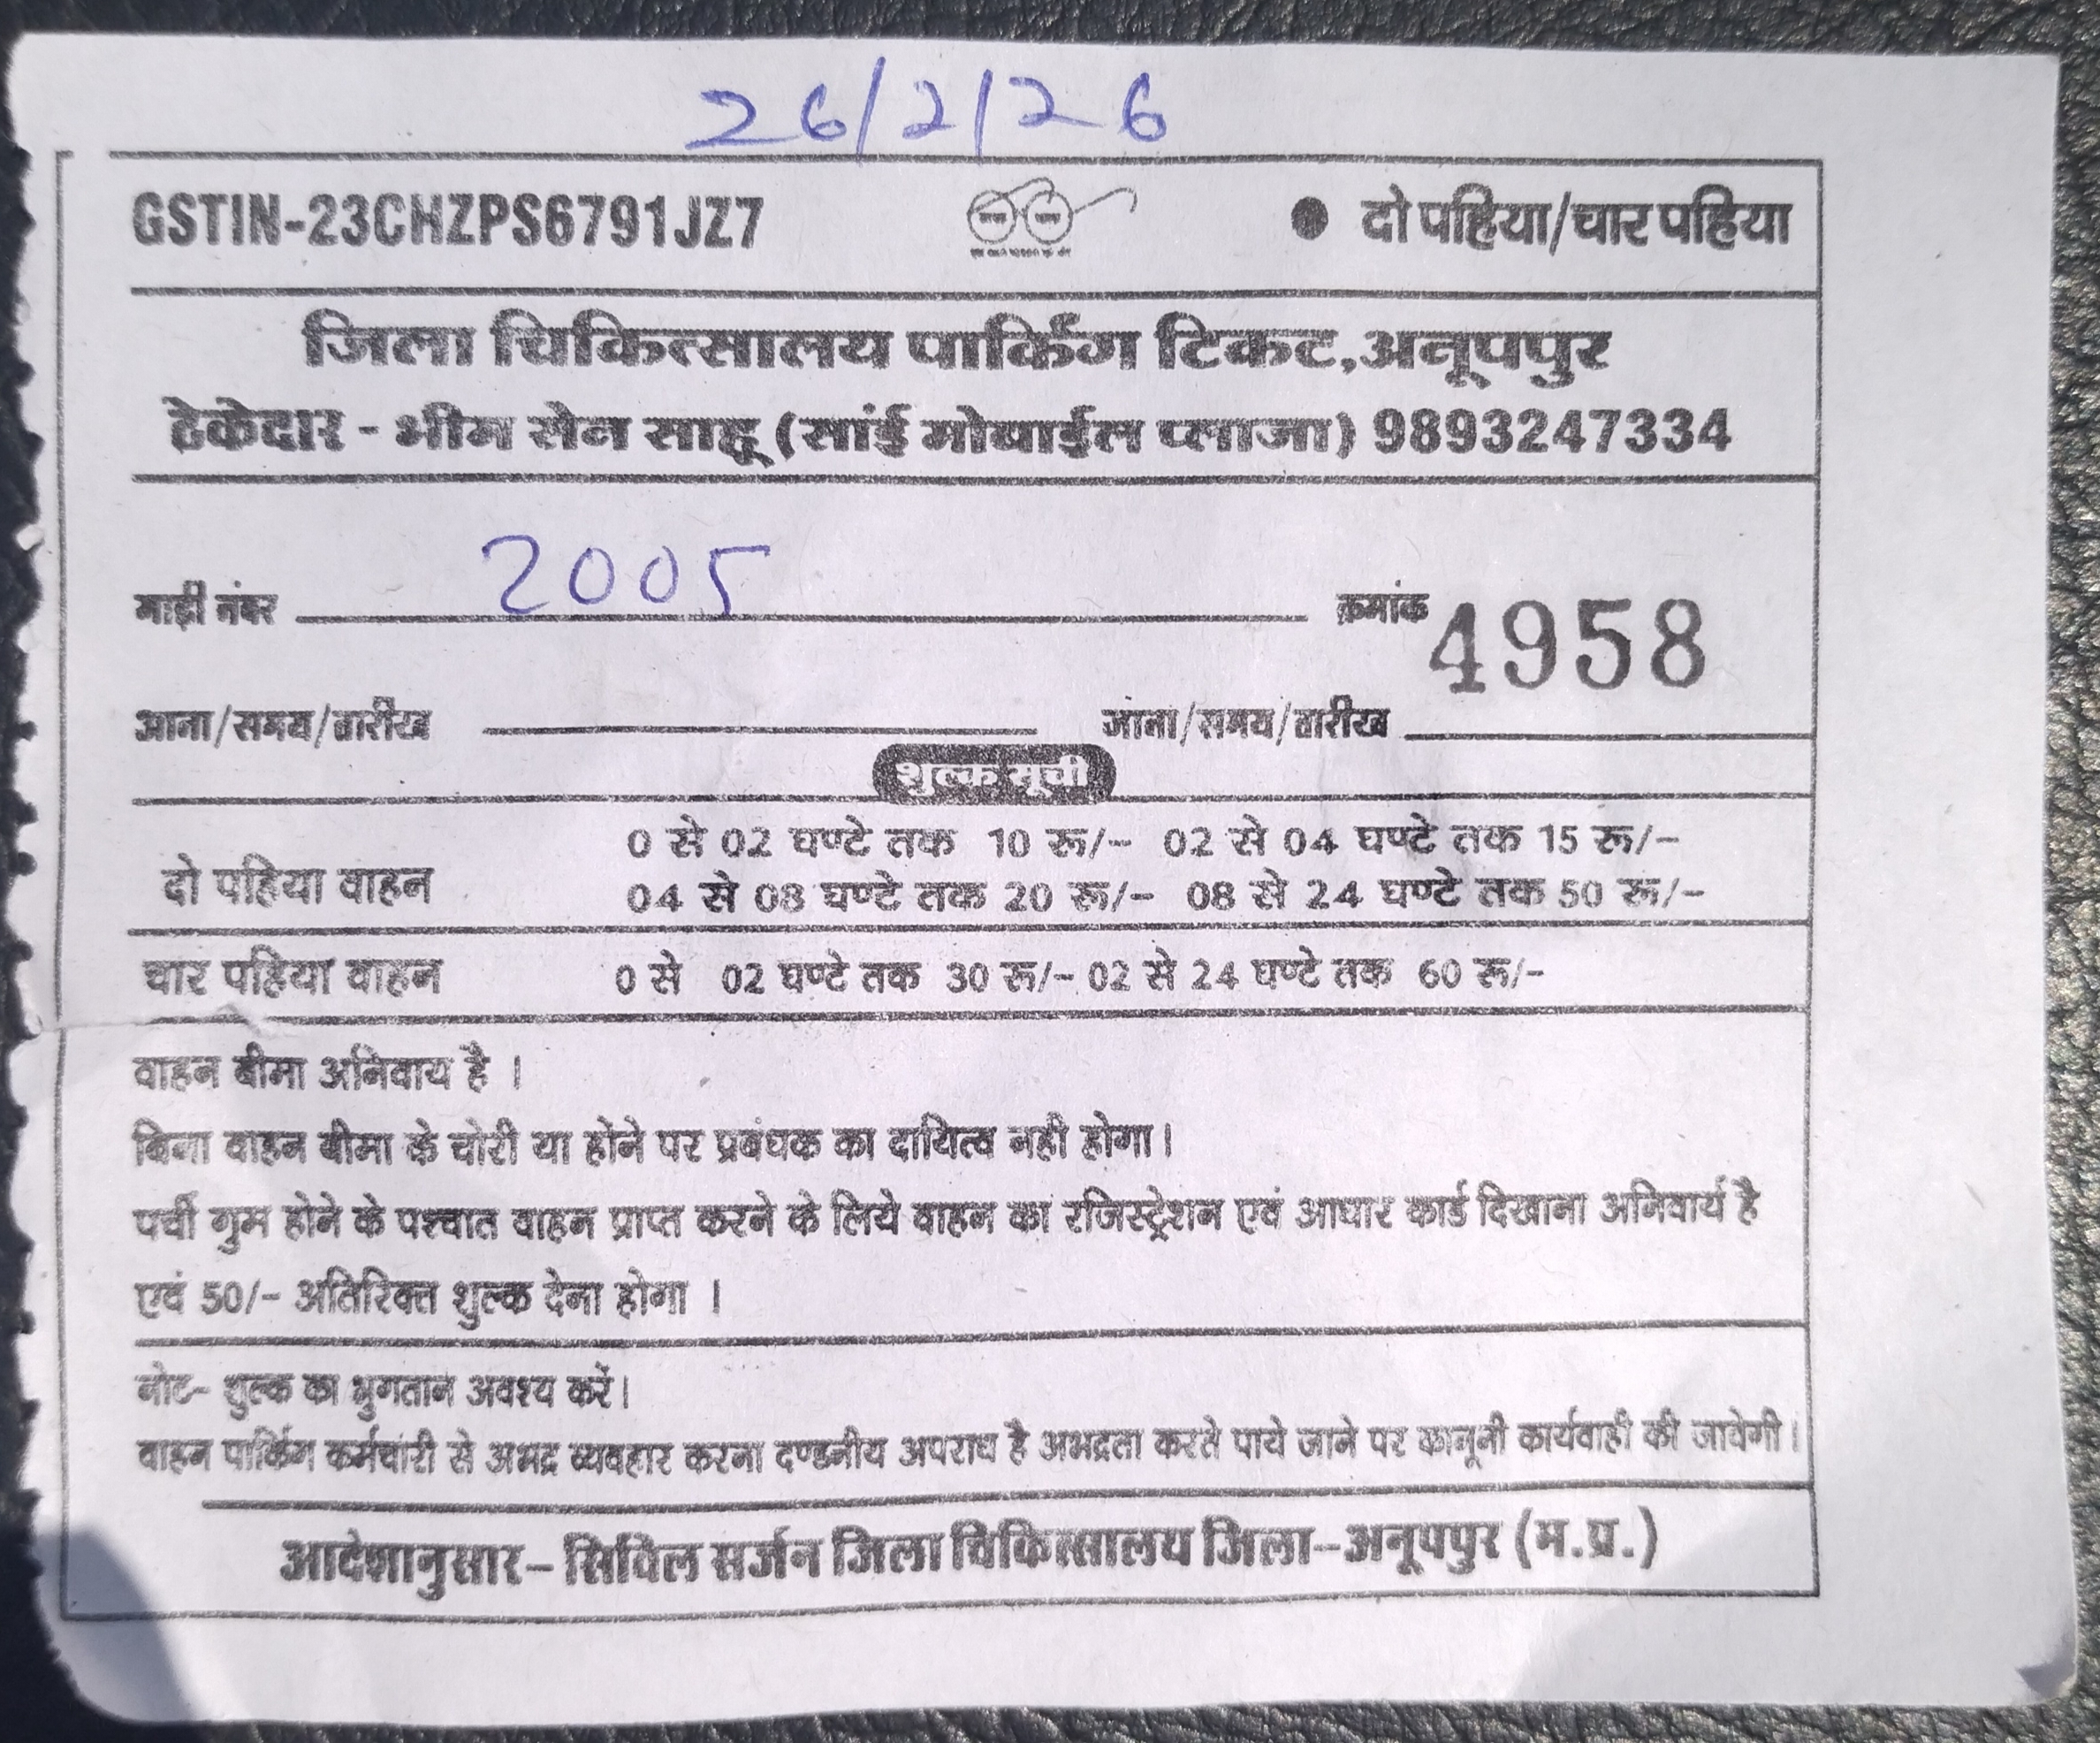 26/2/26
GSTIN-23CHZPS6791JZ7 ● दो पहिया/चार पहिया
जिला चिकित्सालय पार्किंग टिकट,अनूपपुर
ठेकेदार - भीम सेन साहू (सांई मोबाईल प्लाजा) 9893247334
गाड़ी नंबर 2005 क्रमांक 4958
आना/समय/तारीख जाना/समय/तारीख
शुल्क सूची
0 से 02 घण्टे तक 10 रू/- 02 से 04 घण्टे तक 15 रू/-
दो पहिया वाहन
04 से 08 घण्टे तक 20 रू/- 08 से 24 घण्टे तक 50 रू/-
चार पहिया वाहन 0 से 02 घण्टे तक 30 रू/- 02 से 24 घण्टे तक 60 रू/-
वाहन बीमा अनिवाय है ।
बिना वाहन बीमा के चोरी या होने पर प्रबंधक का दायित्व नही होगा।
पर्ची गुम होने के पश्चात वाहन प्राप्त करने के लिये वाहन का रजिस्ट्रेशन एवं आधार कार्ड दिखाना अनिवार्य है
एवं 50/- अतिरिक्त शुल्क देना होगा ।
नोट- शुल्क का भुगतान अवश्य करें।
वाहन पार्किंग कर्मचारी से अभद्र व्यवहार करना दण्डनीय अपराध है अभद्रता करते पाये जाने पर कानूनी कार्यवाही की जावेगी।
आदेशानुसार- सिविल सर्जन जिला चिकित्सालय जिला-अनूपपुर (म.प्र.)